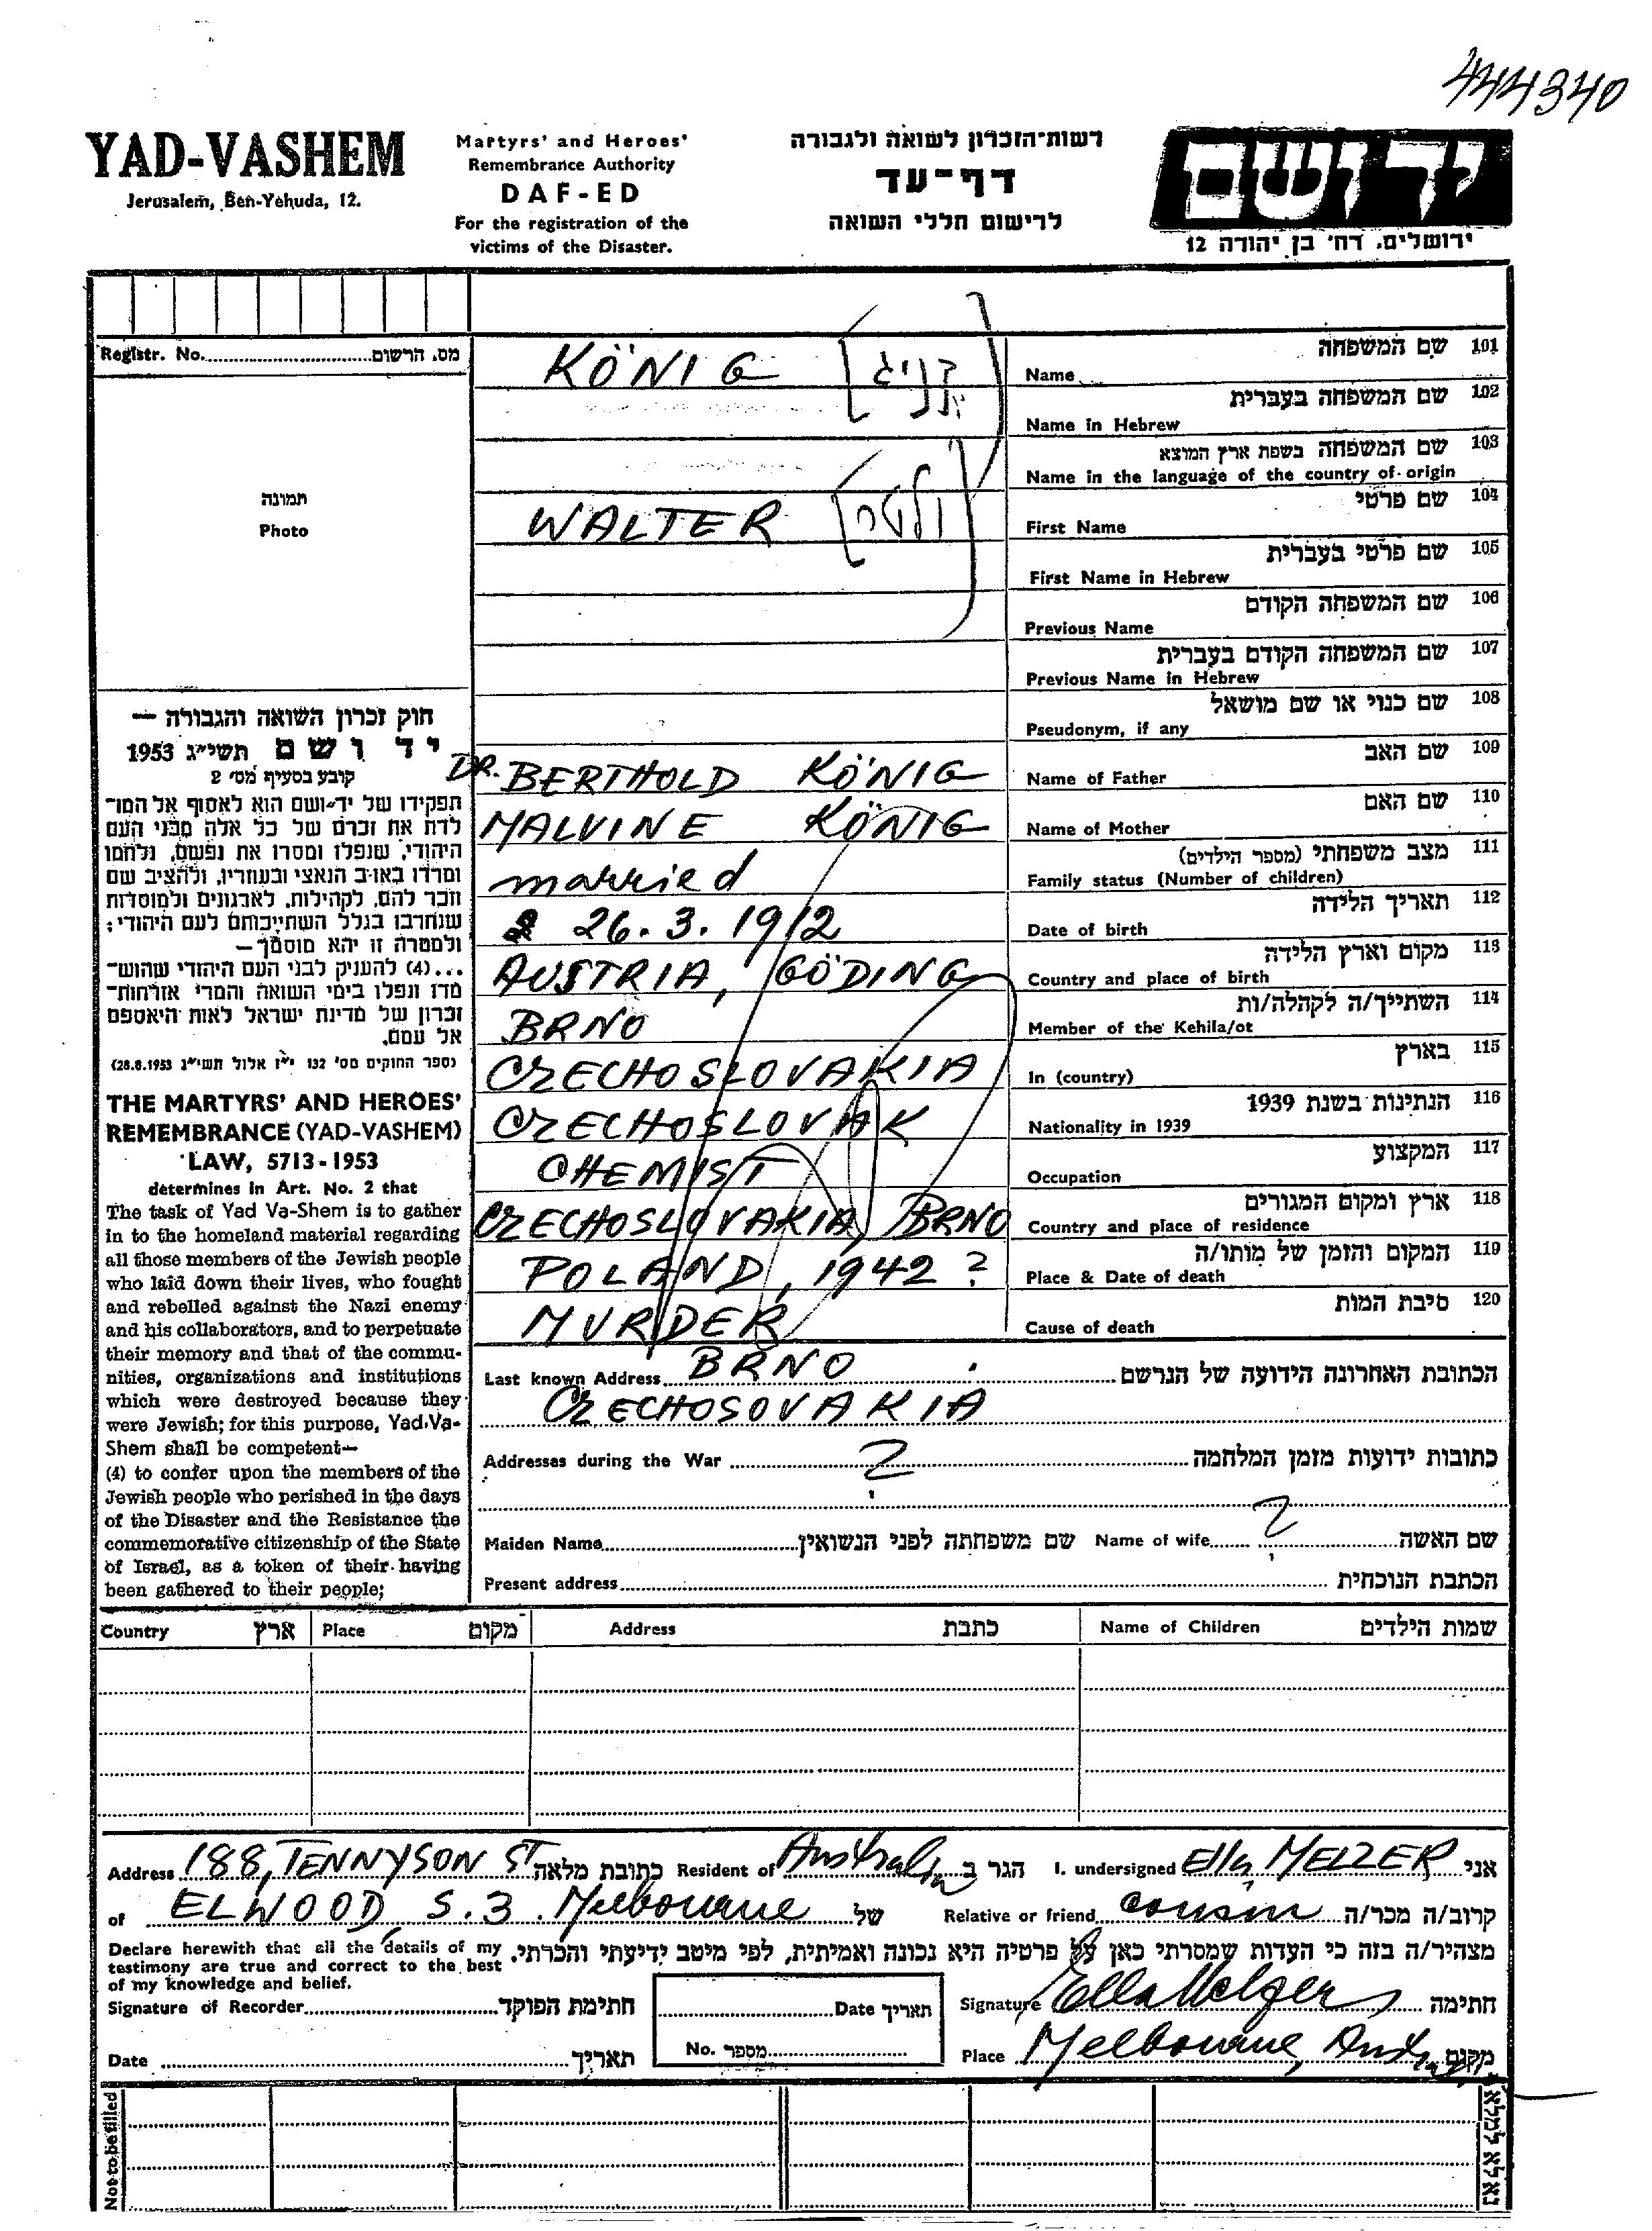 444340
YAD-VASHEM
Jerusalem, Ben-Yehuda, 12.
Martyrs' and Heroes'
Remembrance Authority
DAF-ED
For the registration of the
victims of the Disaster.
רשות-הזכרון לשואה ולגבורה
דף-עד
לרישום חללי השואה
יד ושם
ירושלים, רח' בן יהודה 12
Registr. No. מס. הרשום
תמונה
Photo
חוק זכרון השואה והגבורה —
יד ושם תשי״ג 1953
קובע בסעיף מס' 2
תפקידו של יד-ושם הוא לאסוף אל המו־
לדת את זכרם של כל אלה מבני העם
היהודי, שנפלו ומסרו את נפשם, נלחמו
ומרדו באויב הנאצי ובעוזריו, ולהציב שם
וזכר להם, לקהילות, לארגונים ולמוסדות
שנחרבו בגלל השתייכותם לעם היהודי;
ולמטרה זו יהא מוסמך—
...(4) להעניק לבני העם היהודי שהוש־
מדו ונפלו בימי השואה והמרי אזרחות־
זכרון של מדינת ישראל לאות היאספם
אל עמם.
(ספר החוקים מס' 132 י״ז אלול תשי״ג 28.8.1953)
THE MARTYRS' AND HEROES'
REMEMBRANCE (YAD-VASHEM)
LAW, 5713-1953
determines in Art. No. 2 that
The task of Yad Va-Shem is to gather
in to the homeland material regarding
all those members of the Jewish people
who laid down their lives, who fought
and rebelled against the Nazi enemy
and his collaborators, and to perpetuate
their memory and that of the commu-
nities, organizations and institutions
which were destroyed because they
were Jewish; for this purpose, Yad-Va-
Shem shall be competent—
(4) to confer upon the members of the
Jewish people who perished in the days
of the Disaster and the Resistance the
commemorative citizenship of the State
of Israel, as a token of their having
been gathered to their people;
KÖNIG [קניג] Name שם המשפחה 101
Name in Hebrew שם המשפחה בעברית 102
Name in the language of the country of origin שם המשפחה בשפת ארץ המוצא 103
WALTER [ולטר] First Name שם פרטי 104
First Name in Hebrew שם פרטי בעברית 105
Previous Name שם המשפחה הקודם 106
Previous Name in Hebrew שם המשפחה הקודם בעברית 107
Pseudonym, if any שם כנוי או שם מושאל 108
DR. BERTHOLD KÖNIG Name of Father שם האב 109
MALVINE KÖNIG Name of Mother שם האם 110
married Family status (Number of children) מצב משפחתי (מספר הילדים) 111
26.3.1912 Date of birth תאריך הלידה 112
AUSTRIA, GÖDING Country and place of birth מקום וארץ הלידה 113
BRNO Member of the Kehila/ot השתייך/ה לקהלה/ות 114
CZECHOSLOVAKIA In (country) בארץ 115
CZECHOSLOVAK Nationality in 1939 הנתינות בשנת 1939 116
CHEMIST Occupation המקצוע 117
CZECHOSLOVAKIA, BRNO Country and place of residence ארץ ומקום המגורים 118
POLAND, 1942? Place & Date of death המקום והזמן של מותו/ה 119
MURDER Cause of death סיבת המות 120
Last known Address BRNO הכתובת האחרונה הידועה של הנרשם
CZECHOSOVAKIA
Addresses during the War ? כתובות ידועות מזמן המלחמה
Maiden Name שם משפחתה לפני הנשואין Name of wife ? שם האשה
Present address הכתבת הנוכחית
Country ארץ Place מקום Address כתבת Name of Children שמות הילדים
Address 188, TENNYSON ST כתובת מלאה Resident of Australia הגר ב I. undersigned Ella MELZER אני
of ELWOOD S.3. Melbourne של Relative or friend cousin קרוב/ה מכר/ה
Declare herewith that all the details of my
testimony are true and correct to the best
of my knowledge and belief.
מצהיר/ה בזה כי העדות שמסרתי כאן על פרטיה היא נכונה ואמיתית, לפי מיטב ידיעתי והכרתי.
Signature of Recorder חתימת הפוקד Date תאריך Signature Ella Melzer חתימה
Date תאריך No. מספר Place Melbourne, מקום
Not to be filled
נא לא למלא